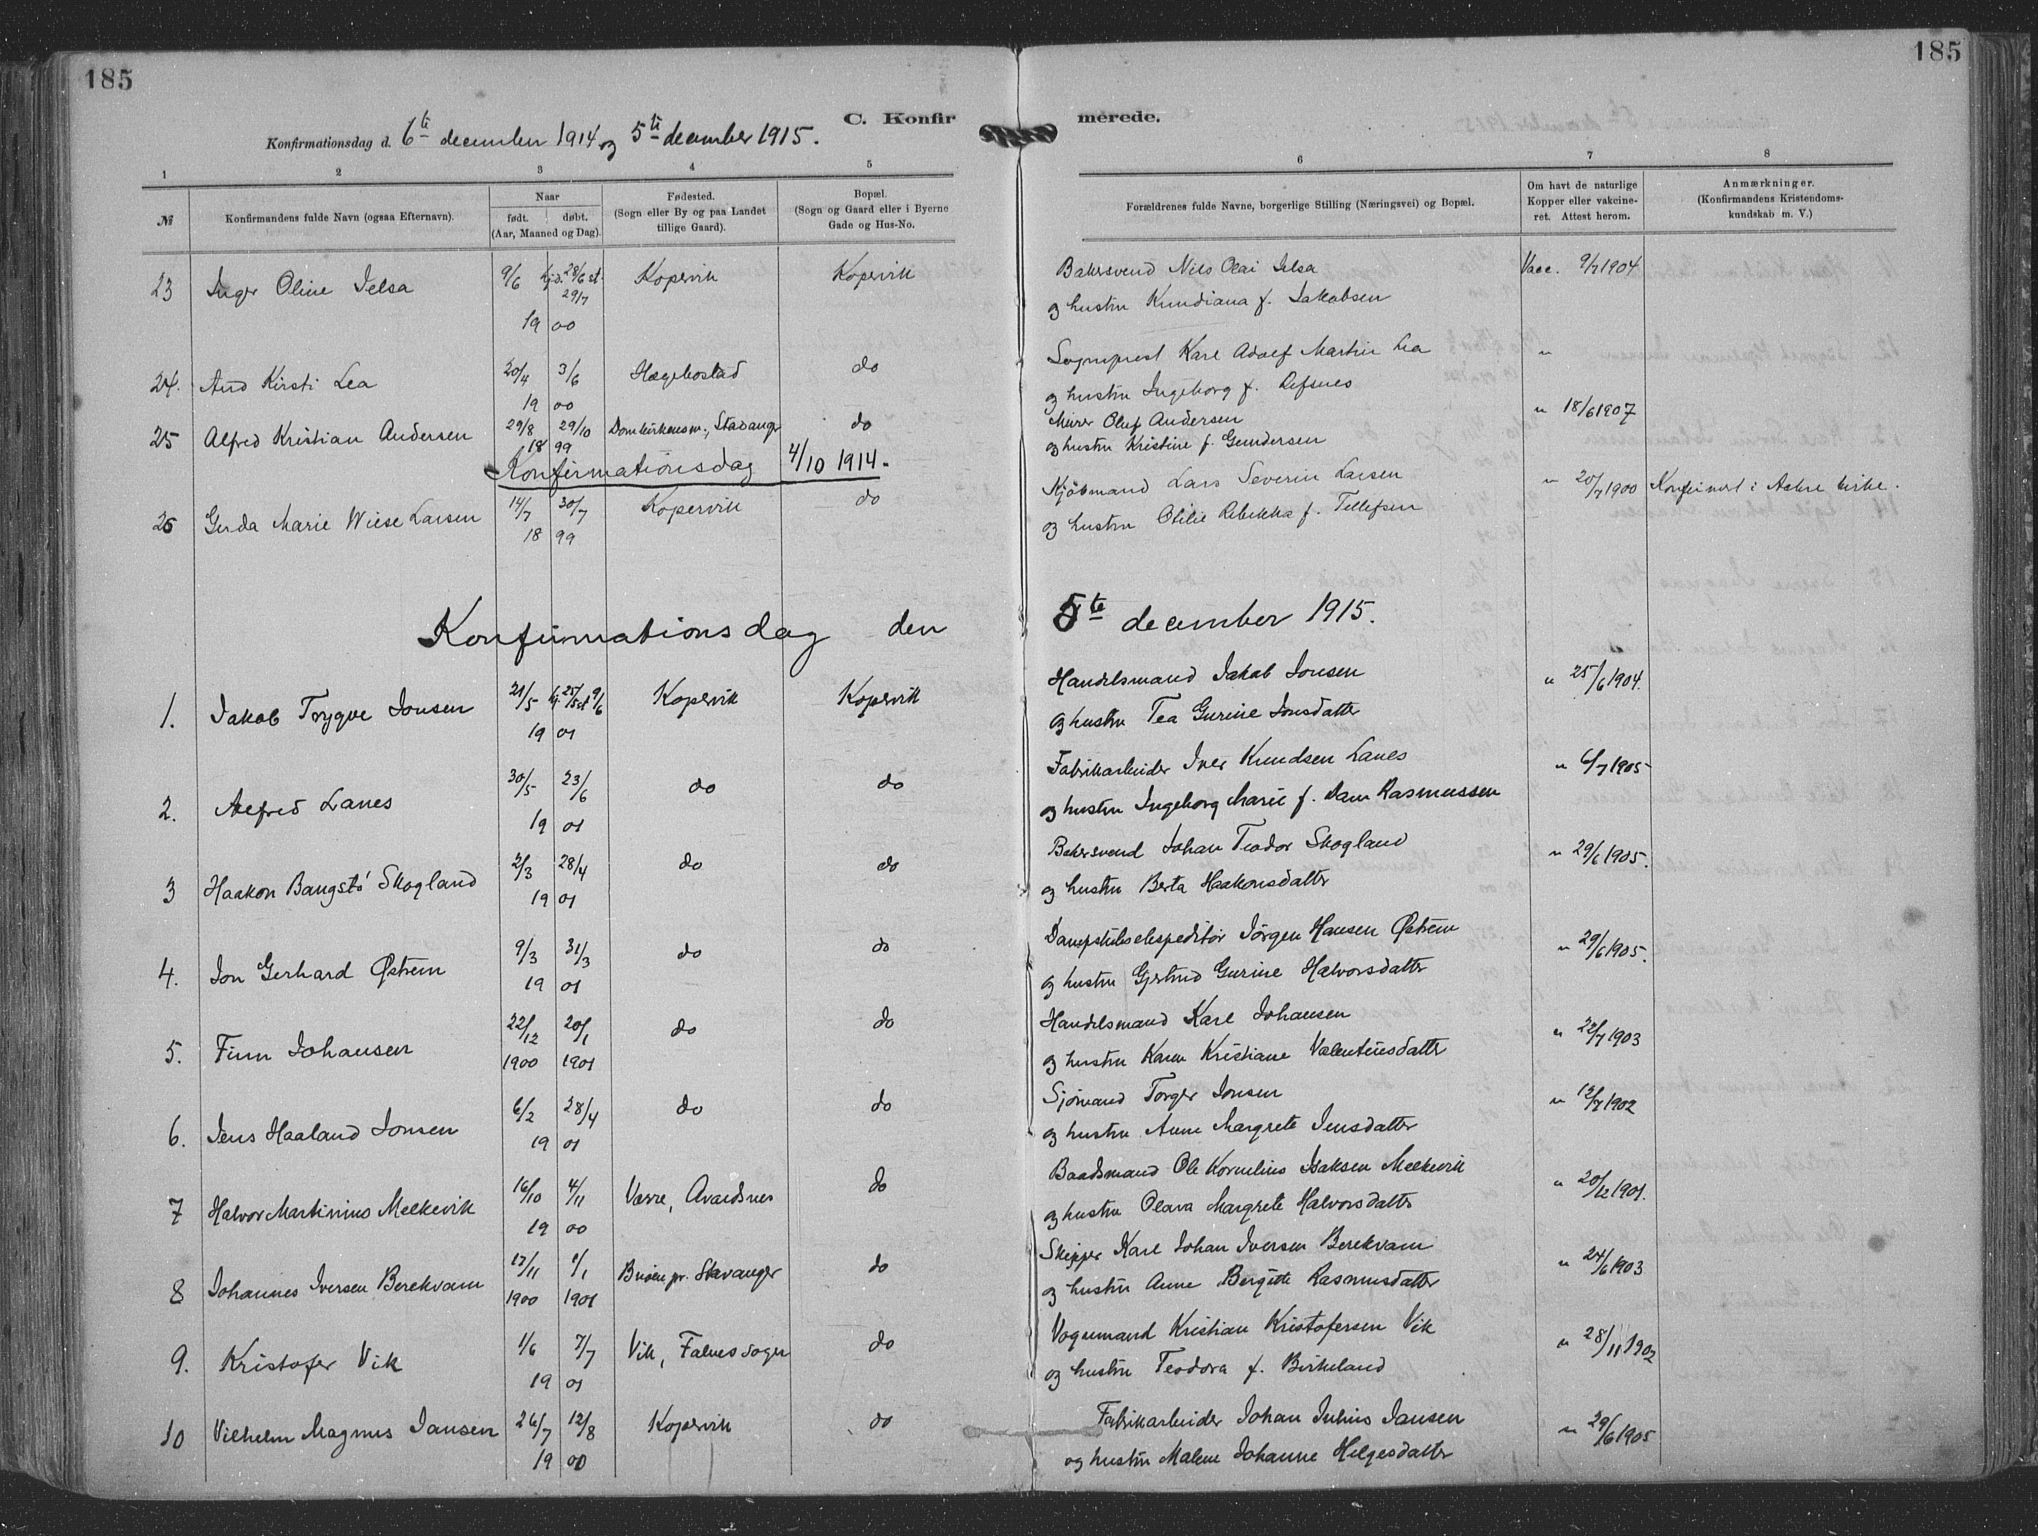 185
185
C. Konfir
merede.
Konfirmationsdag d. 6te december 1914 og 5te december 1915.
1 2 3 4 5 6 7 8
№
Konfirmandens fulde Navn (ogsaa Efternavn).
Naar
født. døbt.
(Aar, Maaned og Dag).
Fødested.
(Sogn eller By og paa Landet
tillige Gaard).
Bopæl.
(Sogn og Gaard eller i Byerne
Gade og Hus-No.
Forældrenes fulde Navne, borgerlige Stilling (Næringsvei) og Bopæl.
Om havt de naturlige
Kopper eller vakcine-
ret. Attest herom.
Anmærkninger.
(Konfirmandens Kristendoms-
kundskab m. V.)
23 Inger Oline Jelsa 9/6 hjd. 28/6 st. 29/7 Kopervik Kopervik Bakersvend Nils Olai Jelsa Vacc. 9/7 1904
19 00 og hustru Knudiana f. Jakobsen
24. Aud Kirsti Lea 20/4 3/6 Hægebostad do Sogneprest Karl Adolf Martin Lea "
19 00 og hustru Ingeborg f. Refsnes
25 Alfred Kristian Andersen 29/8 29/10 Domkirkens m., Stavanger do Murer Oluf Andersen " 18/6 1907
18 99 og hustru Kristine f. Gundersen
Konfirmationsdag 4/10 1914.
26 Gerda Marie Wiese Larsen 14/7 30/7 Kopervik do Kjøbmand Lars Severin Larsen " 20/7 1900 Konfirmert i Aakre kirke.
18 99 og hustru Otilie Rebekka f. Tellefsen
Konfirmationsdag den 5te december 1915.
1. Jakob Trygve Jonsen 21/5 hj. 25/5 st 9/6 Kopervik Kopervik Handelsmand Jakob Jonsen " 25/6 1904.
19 01 og hustru Tea Gurine Jonsdatter
2. Alfred Lanes 30/5 23/6 do do Fabrikarbeider Iver Knudsen Lanes " 6/7 1905
19 01 og hustru Ingeborg Marie f. Dam Rasmussen
3 Haakon Bangstø Skogland 2/3 28/4 do do Bakersvend Johan Teodor Skogland " 29/6 1905.
19 01 og hustru Berta Haakonsdatter
4. Jon Gerhard Østrem 9/3 31/3 do do Dampskibsekspeditør Jørgen Hansen Østrem " 29/6 1905.
19 01 og hustru Gjertrud Gurine Halvorsdatter
5. Finn Johansen 22/12 20/1 do do Handelsmand Karl Johansen " 22/7 1903
1900 1901 og hustru Karen Kristiane Valentinsdatter
6. Jens Haaland Jonsen 6/2 28/4 do do Sjømand Torger Jonsen " 12/7 1902
19 01 og hustru Anne Margrete Jensdatter
7 Halvor Martinius Melkevik 16/10 4/11 Vorre, Avaldsnes do Baadsmand Ole Kornelius Isaksen Melkevik " 20/12 1901.
19 00 og hustru Olava Margrete Halvorsdatter
8 Johannes Iversen Berekvam 17/11 1/1 Buøen pr. Stavanger do Skipper Karl Johan Iversen Berekvam " 24/6 1903
1900 1901 og hustru Anne Bergitte Rasmusdatter
9. Kristofer Vik 1/6 7/7 Vik, Falnes sogn do Vognmand Kristian Kristofersen Vik " 28/11 1902
19 01 og hustru Teodora f. Birkeland
10 Vilhelm Magnus Jansen 26/7 12/8 Kopervik do Fabrikarbeider Johan Julius Jansen " 29/6 1905
19 00 og hustru Malene Johanne Helgesdatter